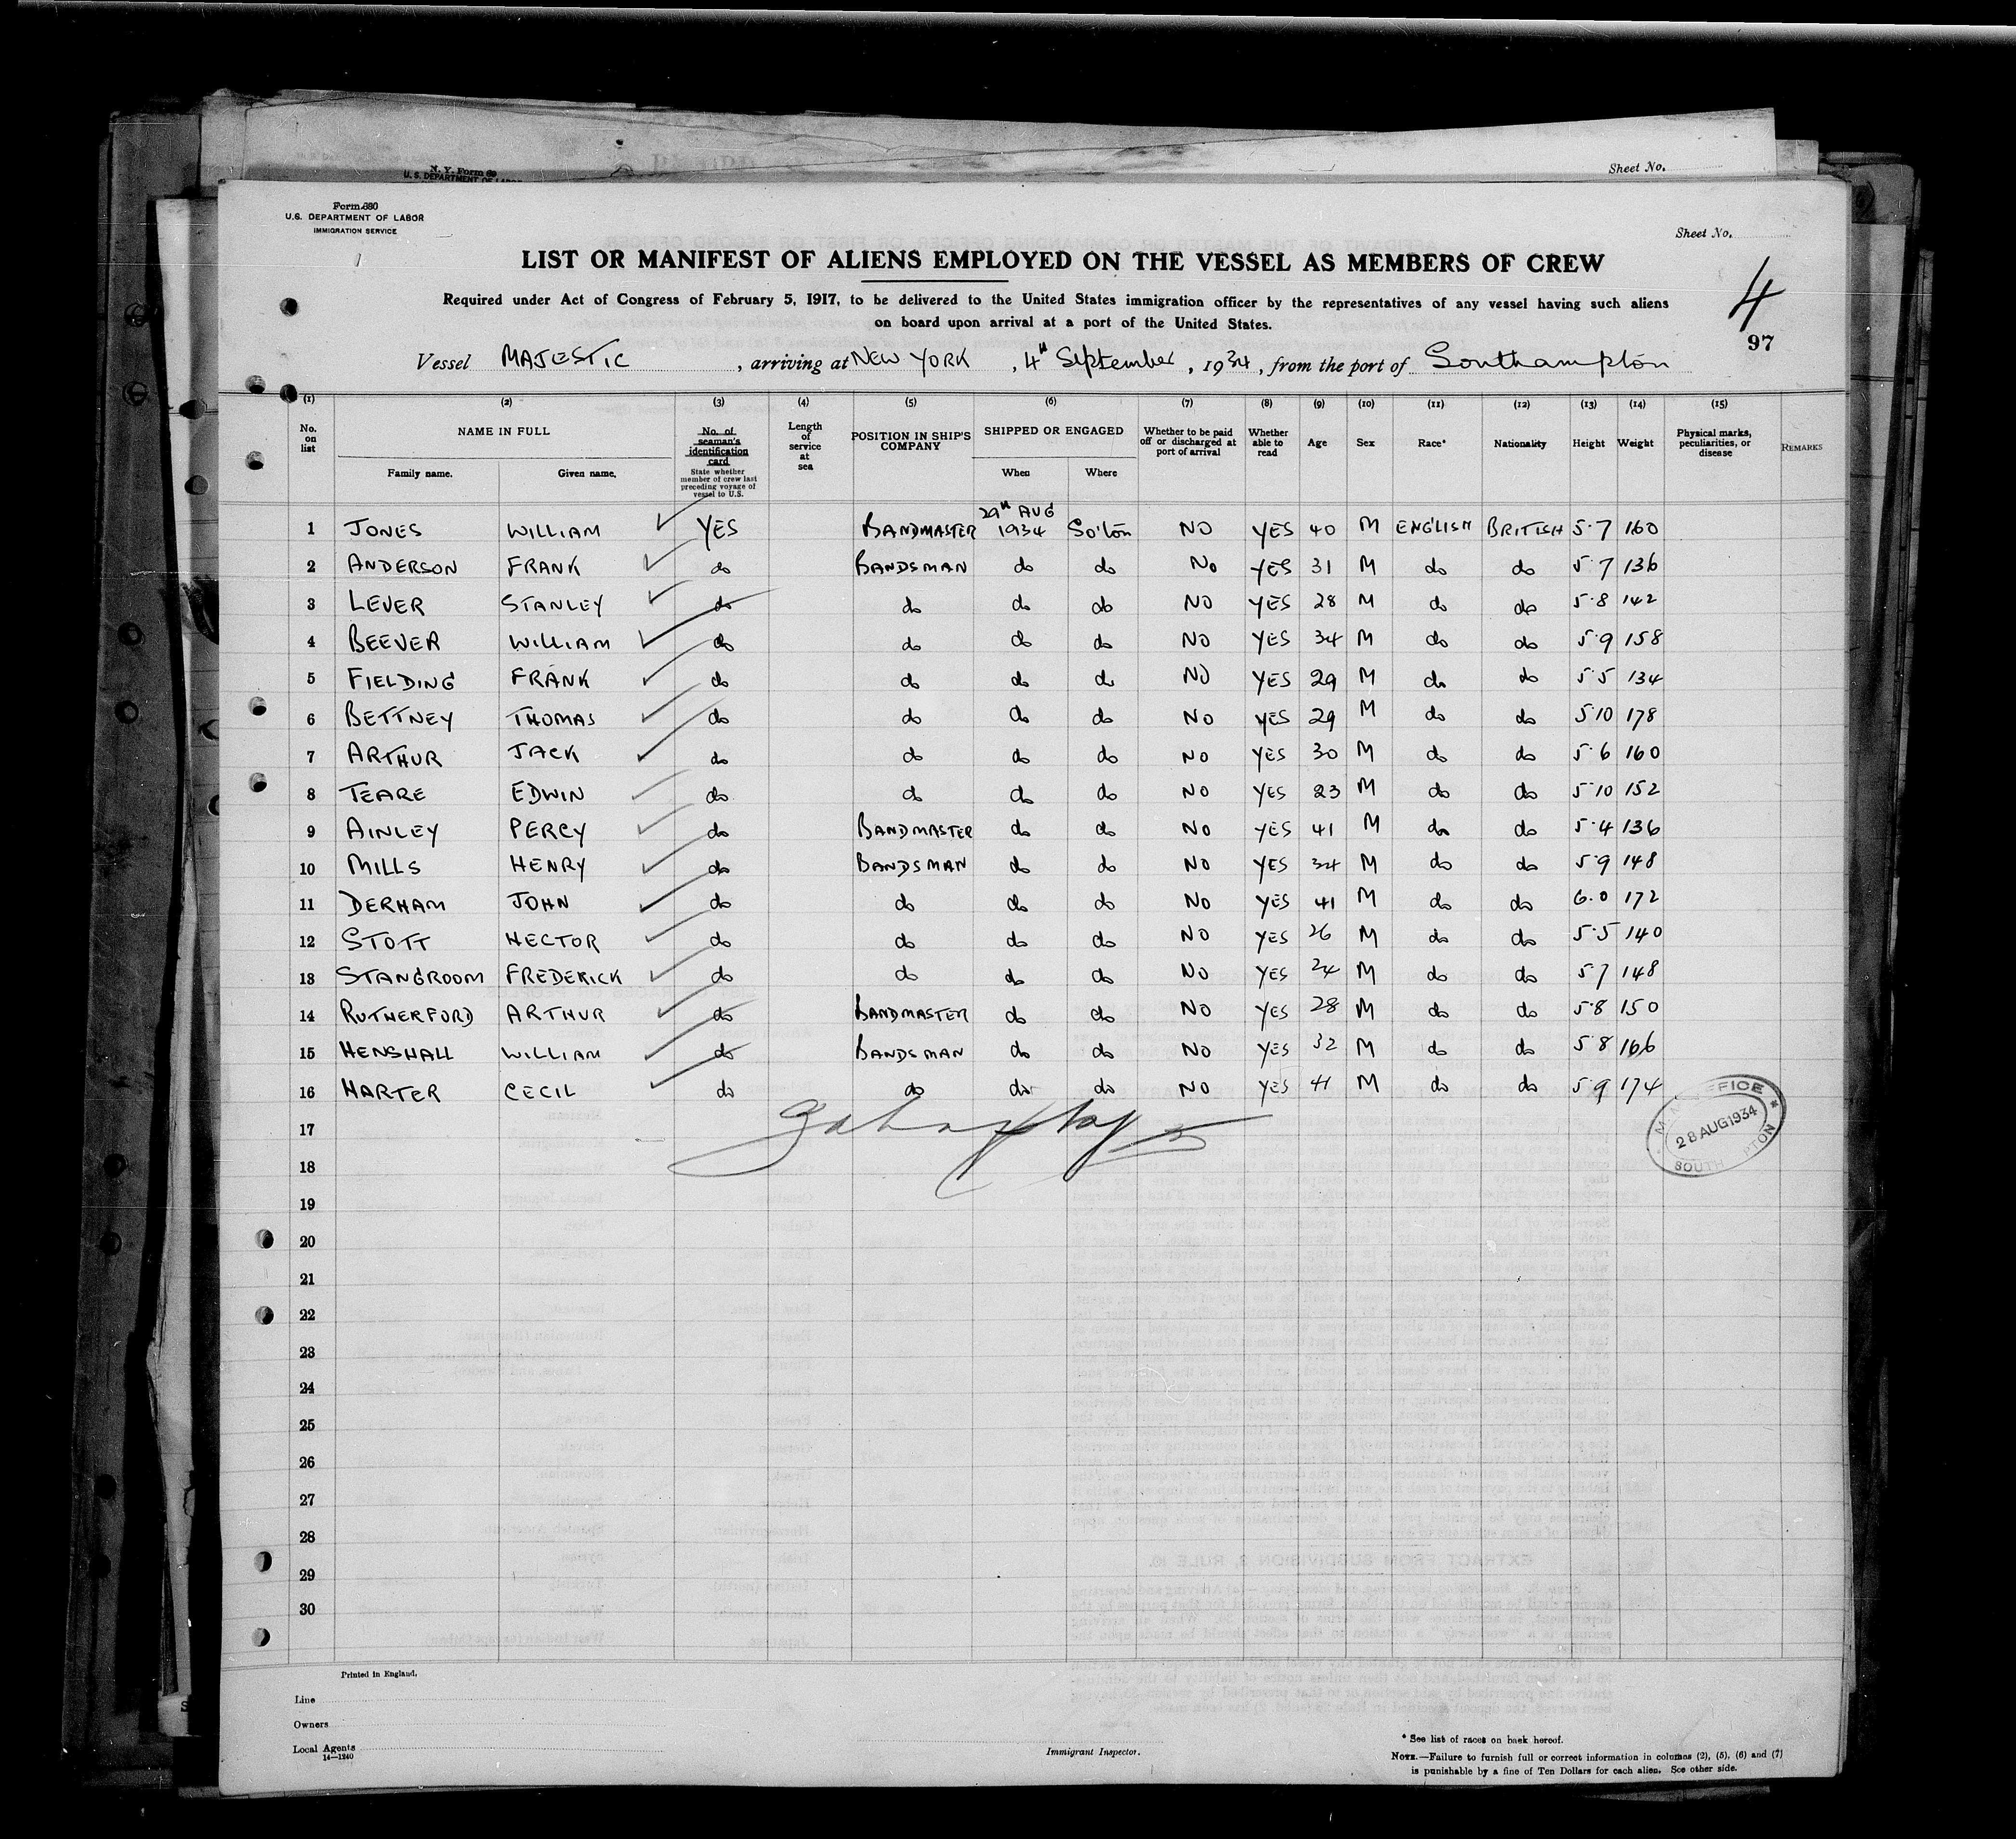 N. Y. Form 69
U. S. DEPARTMENT OF LABOR
Sheet No.
Form 680
U.S. DEPARTMENT OF LABOR
IMMIGRATION SERVICE
Sheet No.
LIST OR MANIFEST OF ALIENS EMPLOYED ON THE VESSEL AS MEMBERS OF CREW
Required under Act of Congress of February 5, 1917, to be delivered to the United States immigration officer by the representatives of any vessel having such aliens
on board upon arrival at a port of the United States.
4
97
Vessel MAJESTIC, arriving at NEW YORK, 4th September, 1934, from the port of Southampton
(1) (2) (3) (4) (5) (6) (7) (8) (9) (10) (11) (12) (13) (14) (15)
No. on list NAME IN FULL Family name. Given name. No. of seaman's identification card State whether member of crew last preceding voyage of vessel to U.S. Length of service at sea POSITION IN SHIP'S COMPANY SHIPPED OR ENGAGED When Where Whether to be paid off or discharged at port of arrival Whether able to read Age Sex Race* Nationality Height Weight Physical marks, peculiarities, or disease REMARKS
1 JONES WILLIAM YES BANDMASTER 29th AUG 1934 So'ton NO YES 40 M ENGLISH BRITISH 5·7 160
2 ANDERSON FRANK do BANDSMAN do do No YES 31 M do do 5·7 136
3 LEVER STANLEY do do do do NO YES 28 M do do 5·8 142
4 BEEVER WILLIAM do do do do NO YES 34 M do do 5·9 158
5 FIELDING FRANK do do do do NO YES 29 M do do 5·5 134
6 BETTNEY THOMAS do do do do NO YES 29 M do do 5·10 178
7 ARTHUR JACK do do do do NO YES 30 M do do 5·6 160
8 TEARE EDWIN do do do do NO YES 23 M do do 5·10 152
9 AINLEY PERCY do BANDMASTER do do NO YES 41 M do do 5·4 136
10 MILLS HENRY do BANDSMAN do do NO YES 34 M do do 5·9 148
11 DERHAM JOHN do do do do NO YES 41 M do do 6·0 172
12 STOTT HECTOR do do do do NO YES 26 M do do 5·5 140
13 STANGROOM FREDERICK do do do do NO YES 24 M do do 5 7 148
14 RUTHERFORD ARTHUR do BANDMASTER do do NO YES 28 M do do 5·8 150
15 HENSHALL WILLIAM do BANDSMAN do do NO YES 32 M do do 5 8 166
16 HARTER CECIL do do do do NO YES 41 M do do 5 9 174
28 AUG 1934
17
18
19
20
21
22
23
24
25
26
27
28
29
30
Printed in England.
Line
Owners
Local Agents
14—1240
Immigrant Inspector.
* See list of races on back hereof.
NOTE.—Failure to furnish full or correct information in columns (2), (5), (6) and (7)
is punishable by a fine of Ten Dollars for each alien. See other side.